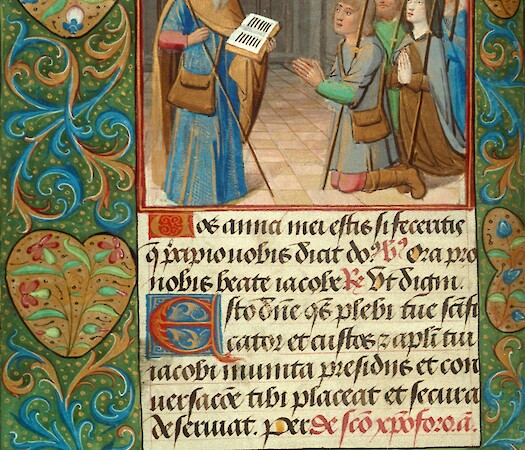 Vos amici mei estis si feceritis
q̄ p̄cipio vobis dicit dn̄s. v̄s. Ora pro
nobis beate iacobe R̄. Vt digni.
Esto dn̄e q̄s plebi tue sancti
ficator et custos ⁊ apl̄i tui
iacobi munita presidiis et con
uersac̄oe tibi placeat et secura
deseruiat. Per De sc̄o xp̄oforo. a.